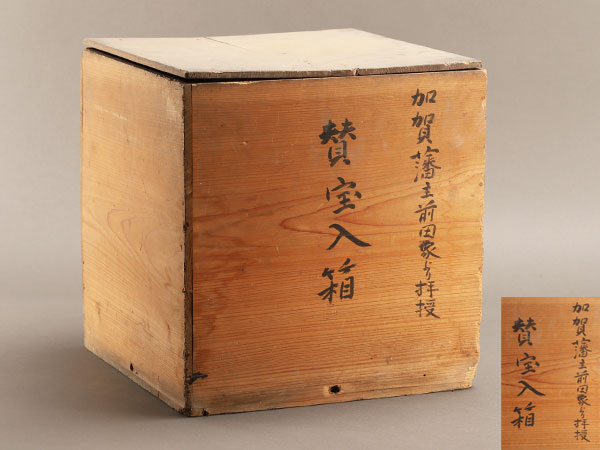 加賀藩主前田家より拝授
賛宝入箱
加賀藩主前田家より拝授
賛宝入箱